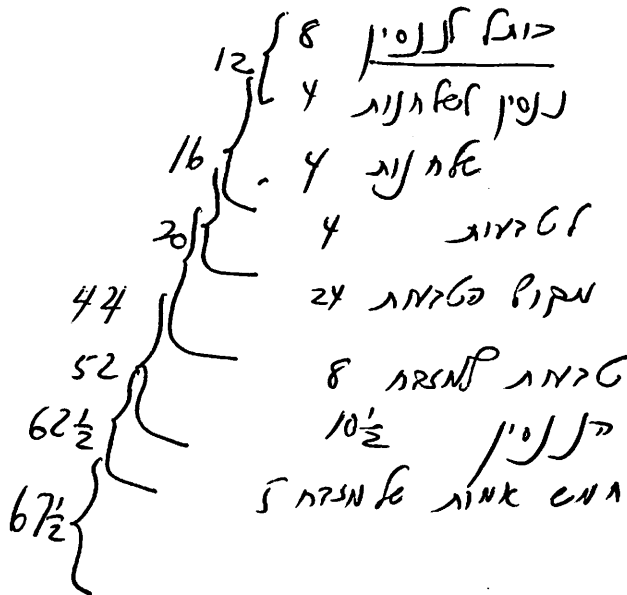 כותל לננסין 8
12
ננסין לשלחנות 4
שלחנות 4
16
לטבעות 4
20
מקום הטבעות 24
44
טבעות למזבח 8
52
הננסין 10½
62½
חמש אמות של מזבח 5
67½